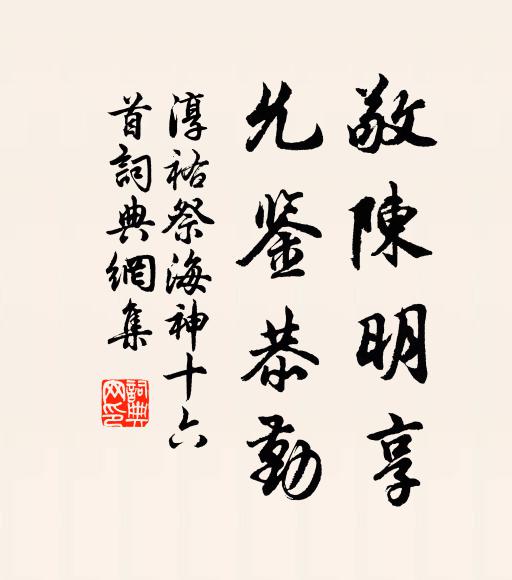 敬陳明享
允鑒恭勤
淳祐祭海神十六
首詞典網集
詞典
网印